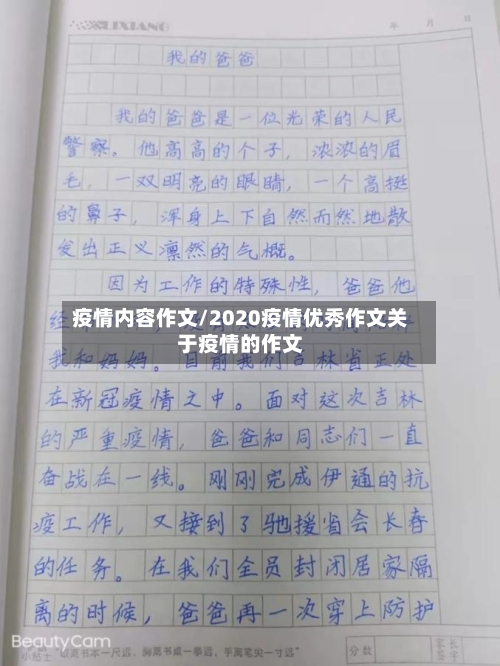 LIXIANG
年 月 日
我的爸爸
我的爸爸是一位光荣的人民
警察。他高高的个子，浓浓的眉
毛，一双明亮的眼睛，一个高挺
的鼻子，浑身上下自然而然地散
发出正义凛然的气概。
因为工作的特殊性，爸爸他
经
疫情内容作文/2020疫情优秀作文关
于疫情的作文
我和妈妈。目前我们吉林省正处
在新冠疫情之中。面对这次吉林
的严重疫情，爸爸和同志们一直
奋战在一线。刚刚完成伊通的抗
疫工作，又接到了驰援省会长春
的任务。在我们全员封闭居家隔
离的时候，爸爸再一次穿上防护
BeautyCam
小贴士 眼离书本一尺远，胸离书桌一拳远，手离笔尖一寸远"
分数
家长签字